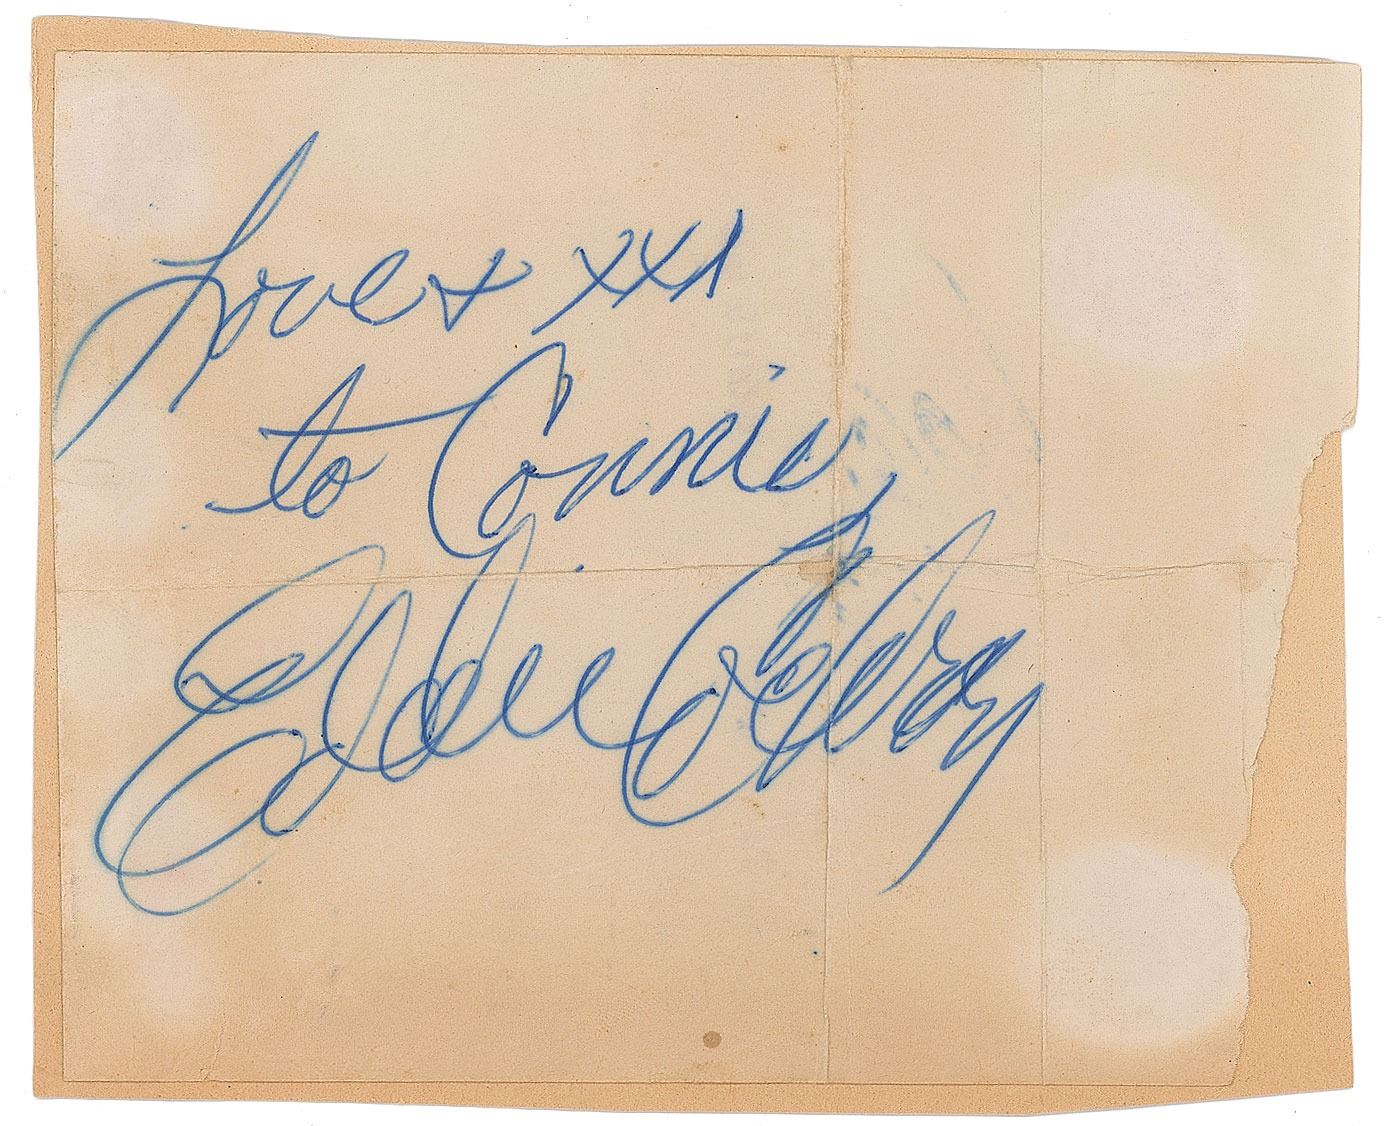 Love + xxx
to Connie,
Eddie Cochran